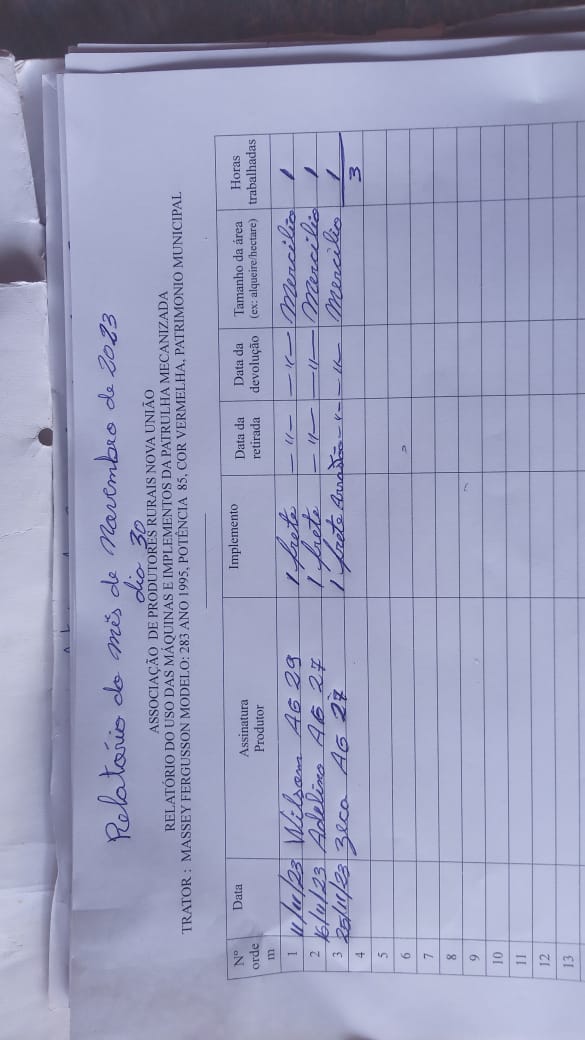 Relatório do mês de novembro de 2023
dia 30
ASSOCIAÇÃO DE PRODUTORES RURAIS NOVA UNIÃO
RELATÓRIO DO USO DAS MÁQUINAS E IMPLEMENTOS DA PATRULHA MECANIZADA
TRATOR : MASSEY FERGUSSON MODELO: 283 ANO 1995, POTÊNCIA 85, COR VERMELHA, PATRIMONIO MUNICIPAL
Nº orde m Data Assinatura Produtor Implemento Data da retirada Data da devolução Tamanho da área (ex: alqueire/hectare) Horas trabalhadas
1 11/11/23 Wilsom AG 29 1 frete —"— —"— Mercilio 1
2 16/11/23 Adelino AG 27 1 frete —"— —"— Mercilio 1
3 25/11/23 Zeca AG 27 1 frete —"— —"— Mercilio 1
4 3
5
6
7
8
9
10
11
12
13